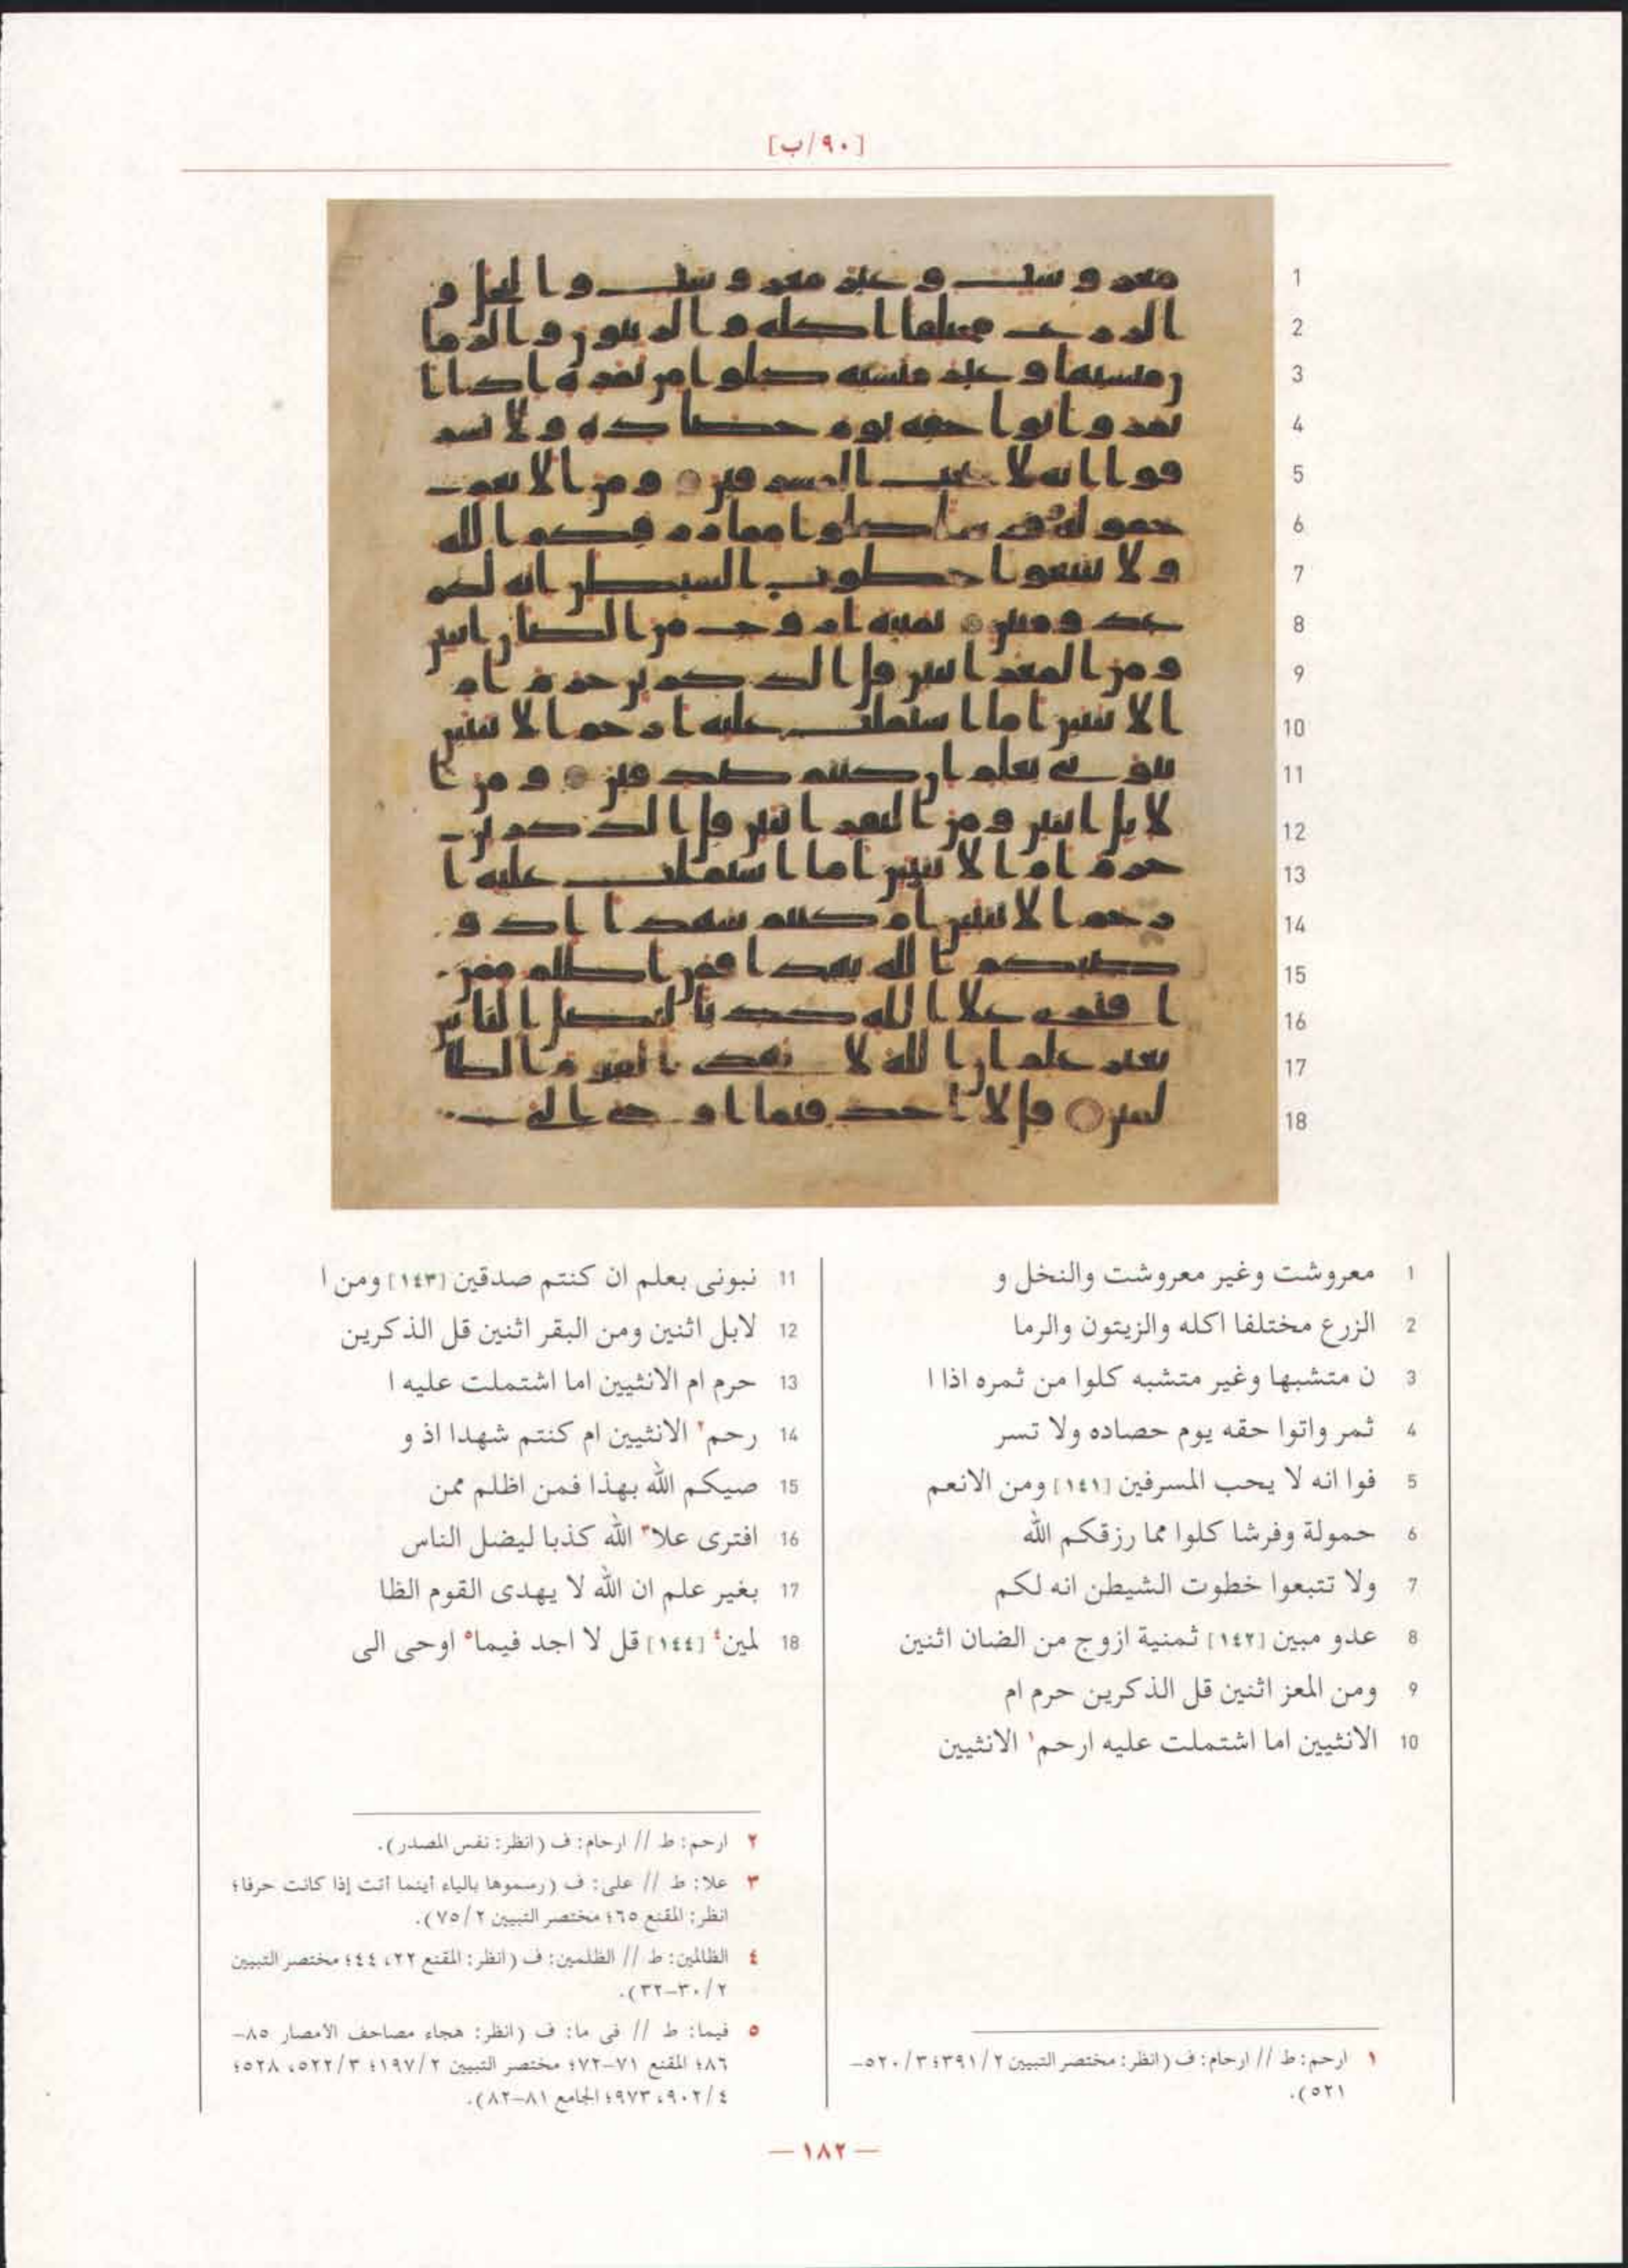 [٩٠/ب]
1 معروشت وغير معروشت والنخل و
2 الزرع مختلفا اكله والزيتون والرما
3 ن متشبها وغير متشبه كلوا من ثمره اذا ا
4 ثمر واتوا حقه يوم حصاده ولا تسر
5 فوا انه لا يحب المسرفين [١٤١] ومن الانعم
6 حمولة وفرشا كلوا مما رزقكم الله
7 ولا تتبعوا خطوت الشيطن انه لكم
8 عدو مبين [١٤٢] ثمنية ازوج من الضان اثنين
9 ومن المعز اثنين قل الذكرين حرم ام
10 الانثيين اما اشتملت عليه ارحم١ الانثيين
١ ارحم: ط // ارحام: ف (انظر: مختصر التبيين ٣٩١/٢؛ ٥٢٠/٣–
٥٢١).
11 نبونى بعلم ان كنتم صدقين [١٤٣] ومن ا
12 لابل اثنين ومن البقر اثنين قل الذكرين
13 حرم ام الانثيين اما اشتملت عليه ا
14 رحم٢ الانثيين ام كنتم شهدا اذ و
15 صيكم الله بهذا فمن اظلم ممن
16 افترى علا٣ الله كذبا ليضل الناس
17 بغير علم ان الله لا يهدى القوم الظا
18 لمين٤ [١٤٤] قل لا اجد فيما٥ اوحى الى
٢ ارحم: ط // ارحام: ف (انظر: نفس المصدر).
٣ علا: ط // على: ف (رسموها بالياء أينما أتت إذا كانت حرفا؛
انظر: المقنع ٦٥؛ مختصر التبيين ٧٥/٢).
٤ الظالمين: ط // الظلمين: ف (انظر: المقنع ٢٢، ٤٤؛ مختصر التبيين
٣٠/٢–٣٢).
٥ فيما: ط // فى ما: ف (انظر: هجاء مصاحف الأمصار ٨٥–
٨٦؛ المقنع ٧١–٧٢؛ مختصر التبيين ١٩٧/٢؛ ٥٢٢/٣، ٥٢٨؛
٩٠٢/٤، ٩٧٣؛ الجامع ٨١–٨٢).
— ١٨٢ —